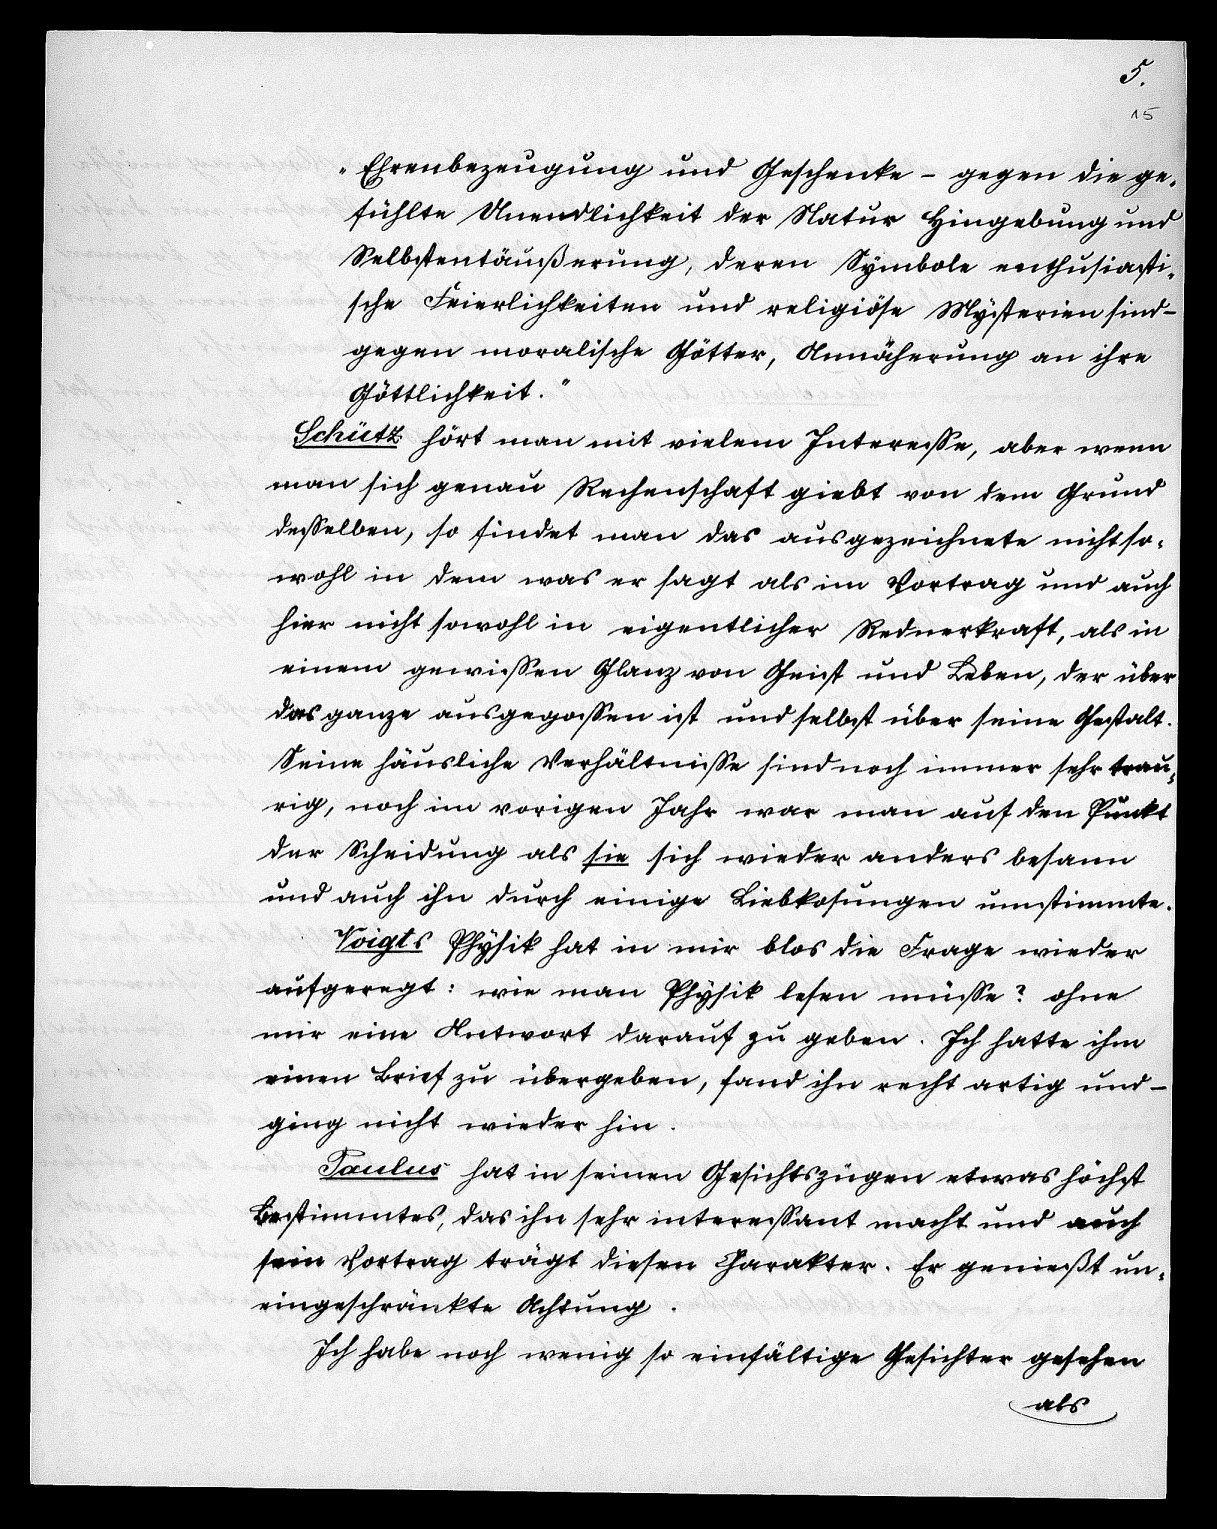 5.
15
"Ehrenbezeugung und Geschenke – gegen die ge-
fühlte Unendlichkeit der Natur Hingebung und
Selbstentäußerung, deren Symbole enthusiasti-
sche Feierlichkeiten und religiöse Mysterien sind –
gegen moralische Götter, Annäherung an ihre
Göttlichkeit."
Schütz hört man mit vielem Interesse, aber wenn
man sich genau Rechenschaft giebt von dem Grund
desselben, so findet man das ausgezeichnete nicht so-
wohl in dem was er sagt als im Vortrag und auch
hier nicht sowohl in eigentlicher Rednerkraft, als in
einem gewissen Glanz von Geist und Leben, der über
das ganze ausgegossen ist und selbst über seine Gestalt.
Seine häusliche Verhältnisse sind noch immer sehr trau-
rig, noch im vorigen Jahr war man auf den Punkt
der Scheidung als sie sich wieder anders besann
und auch ihn durch einige Liebkosungen umstimmte.
Voigts Physik hat in mir blos die Frage wieder
aufgeregt: wie man Physik lesen müsse? ohne
mir eine Antwort darauf zu geben. Ich hatte ihm
einen Brief zu übergeben, fand ihn recht artig und –
ging nicht wieder hin.
Paulus hat in seinen Gesichtszügen etwas höchst
Bestimmtes, das ihn sehr interessant macht und auch
sein Vortrag trägt diesen Charakter. Er genießt un-
eingeschränkte Achtung.
Ich habe noch wenig so einfältige Gesichter gesehen
als